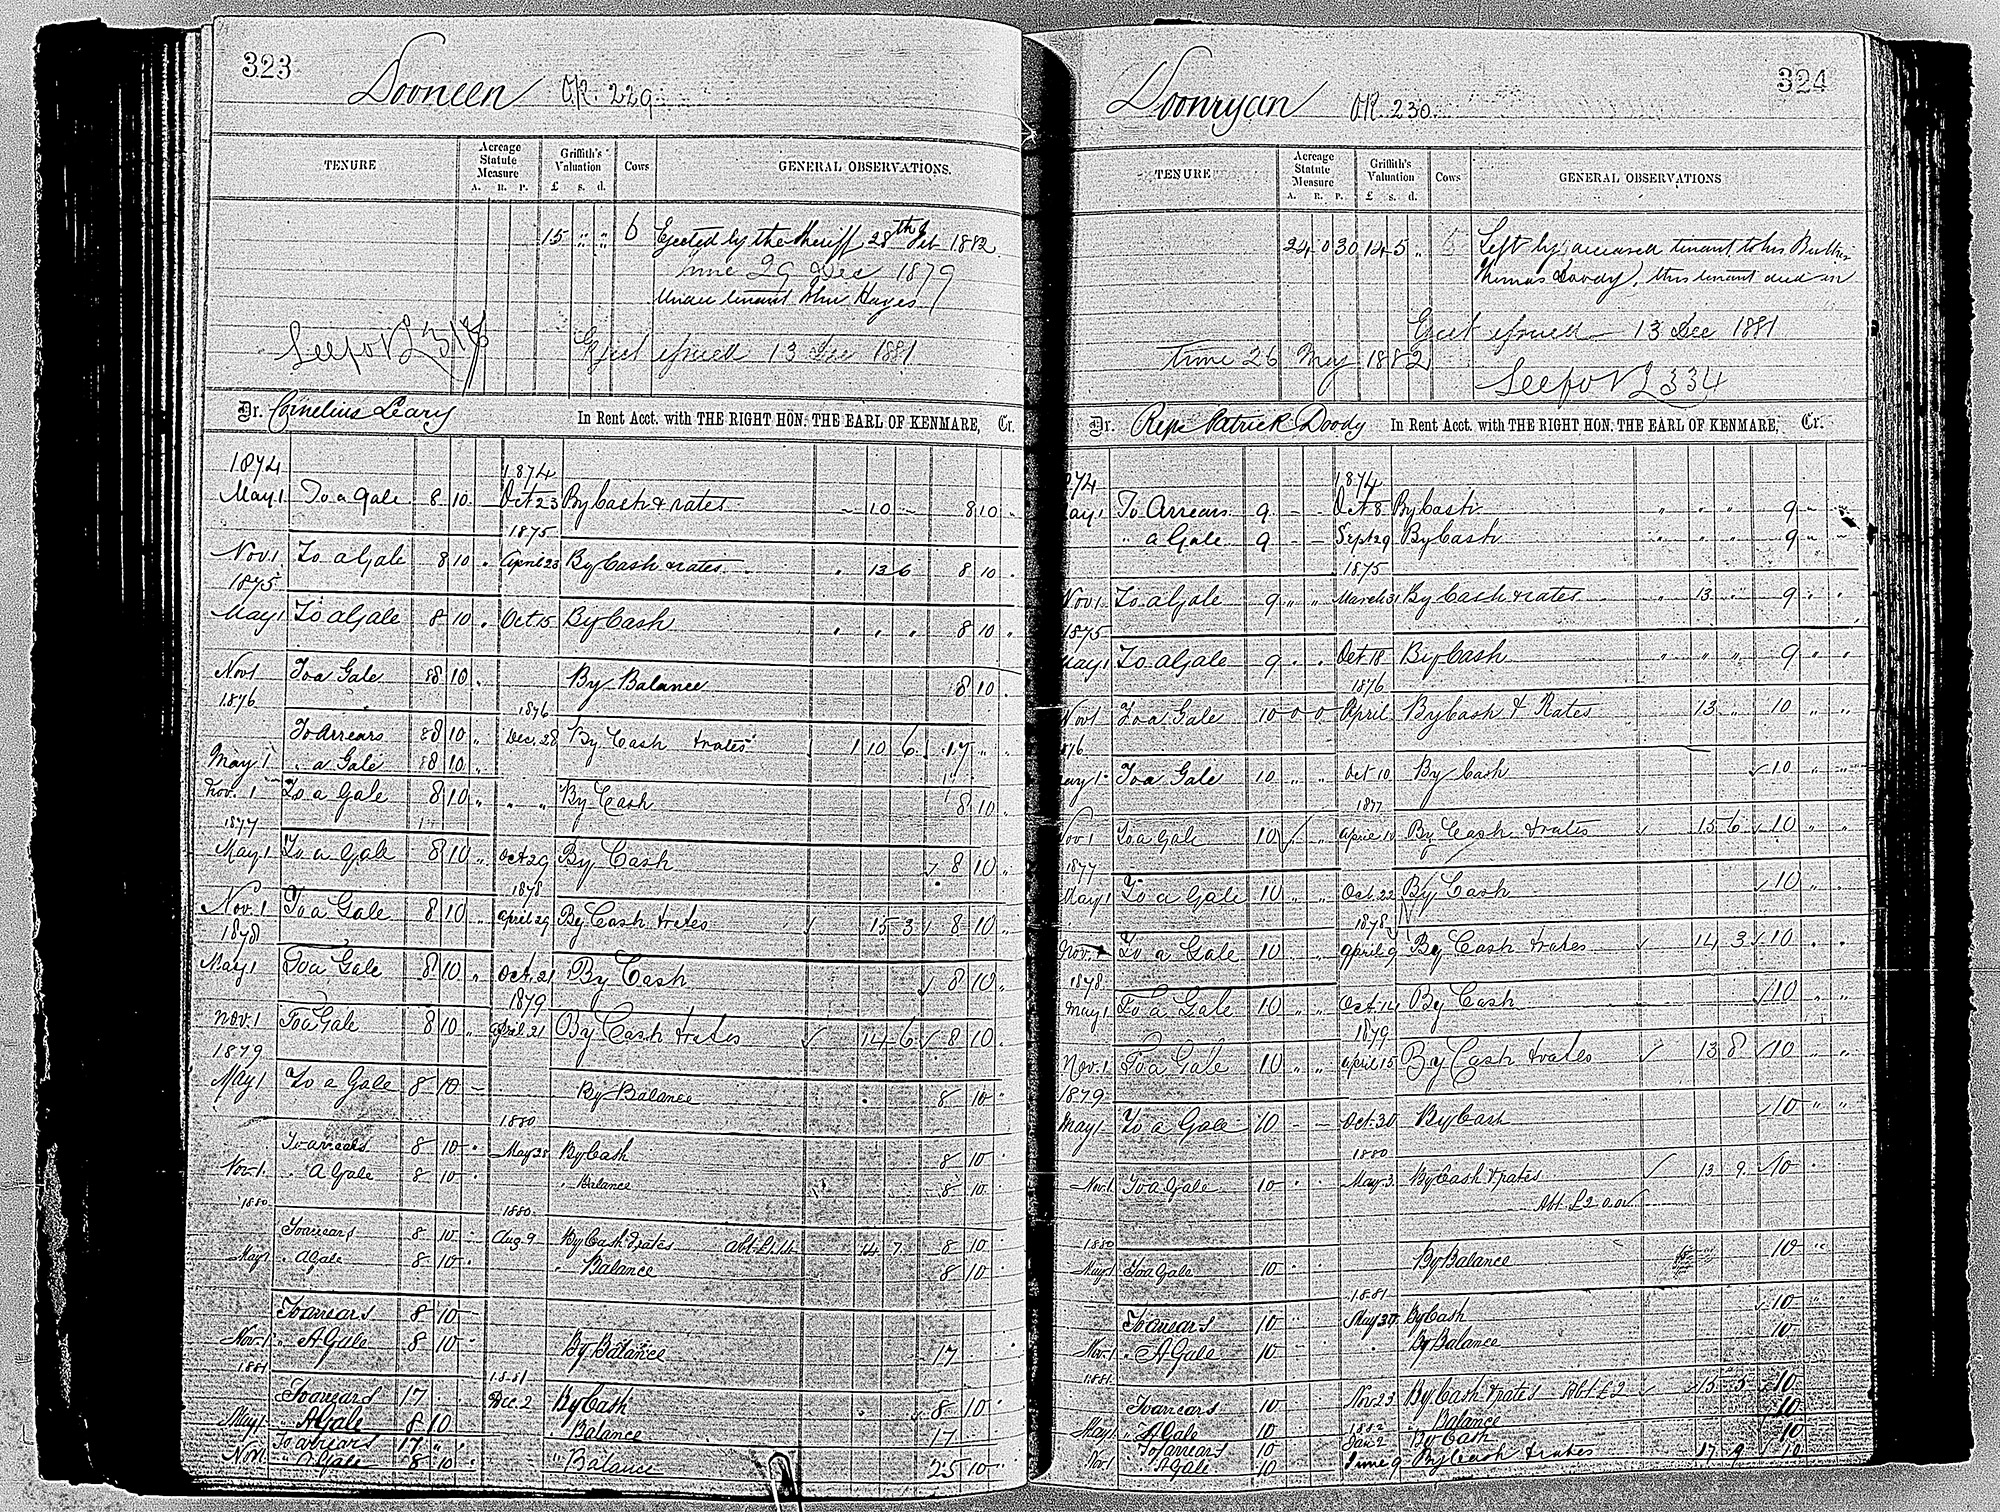 323
Dooneen O.R. 229
TENURE Acreage Statute Measure A. R. P. Griffith's Valuation £ s. d. Cows GENERAL OBSERVATIONS.
15 " " 6 Ejected by the Sheriff 28th Feb 1882
time 29 Dec 1879
Under tenant John Hayes
Eject issued 13 Dec 1881
See fo
Dr. Cornelius Leary In Rent Acct. with THE RIGHT HON. THE EARL OF KENMARE, Cr.
1874 1874
May 1 To a gale 8 10 - Oct 23 By Cash & rates - 10 - 8 10 "
1875
Nov. 1 To a Gale 8 10 " April 23 By Cash & rates " 13 6 8 10 "
1875
May 1 To a Gale 8 10 " Oct 15 By Cash " " " 8 10 "
Nov 1 To a Gale 8 10 " By Balance 8 10 "
1876 1876
To Arrears 8 10 " Dec. 28 By Cash & rates 1 10 6 17 " "
May 1 " a Gale 8 10 "
Nov. 1 To a Gale 8 10 " " " By Cash 8 10 "
1877
May 1 To a Gale 8 10 " Oct 29 By Cash 8 10 "
1878
Nov. 1 To a Gale 8 10 " April 29 By Cash & rates 15 3 8 10 "
1878
May 1 To a Gale 8 10 " Oct. 21 By Cash 8 10 "
1879
Nov. 1 To a Gale 8 10 " April 21 By Cash & rates 14 6 8 10 "
1879
May 1 To a Gale 8 10 - By Balance 8 10 "
1880
To arrears 8 10 " May 28 By Cash 8 10 "
Nov. 1 " A Gale 8 10 " " Balance 8 10 "
1880 1880
To arrears 8 10 " Aug. 9 By Cash & rates 14 7 8 10 "
May 1 " A Gale 8 10 " " Balance 8 10 "
To arrears 8 10 "
Nov. 1 " A Gale 8 10 " By Balance 17 " "
1881 1881
To arrears 17 " Dec. 2 By Cash 8 10 "
May 1 " A Gale 8 10 " Balance 17 " "
To arrears 17 " "
Nov 1 " A Gale 8 10 " " Balance 25 10 "
324
Doonryan O.R. 230
TENURE Acreage Statute Measure A. R. P. Griffith's Valuation £ s. d. Cows GENERAL OBSERVATIONS
24 0 30 14 5 " 6 Left by deceased tenant to his Brother
Thomas Doody, this tenant died in
Eject issued 13 Dec 1881
time 26 May 1882
See fo 334
Dr. Reps Patrick Doody In Rent Acct. with THE RIGHT HON. THE EARL OF KENMARE, Cr.
1874 1874
May 1 To Arrears 9 - - Oct 8 By Cash " " " 9 " "
" a Gale 9 - - Sept 29 By Cash " " " 9 " "
1875
Nov 1 To a Gale 9 " " March 31 By Cash & rates " 13 " 9 " "
1875
May 1 To a Gale 9 " " Oct 18 By Cash " " " 9 " "
1876
Nov 1 To a Gale 10 0 0 April By Cash & Rates 13 " 10 " "
1876
May 1 To a Gale 10 " " Oct 10 By Cash 10 " "
1877
Nov 1 To a Gale 10 " " April 10 By Cash & rates 15 6 10 " "
1877
May 1 To a Gale 10 " " Oct. 22 By Cash 10 " "
1878
Nov. 1 To a Gale 10 " " April 9 By Cash & rates 14 3 10 " "
1878
May 1 To a Gale 10 " " Oct. 14 By Cash 10 " "
1879
Nov. 1 To a Gale 10 " " April 15 By Cash & rates 13 8 10 " "
1879
May 1 To a Gale 10 - - Oct. 30 By Cash 10 " "
1880
Nov. 1 To a Gale 10 " " May 3 By Cash & rates 13 9 10 " "
Abt £2 0.0
1880
May 1 To a Gale 10 " " By Balance 10 " "
1881
To arrears 10 " " May 20 By Cash 10
Nov. 1 " A Gale 10 By Balance 10
1881
To arrears 10 Nov 23 By Cash & rates Abt £2 15 5 10
May 1 " A Gale 10 " Balance 10
1882
To arrears 10 Jan 2 By Cash 10
Nov. 1 " A Gale 10 June 9 By Cash & rates 17 9 10